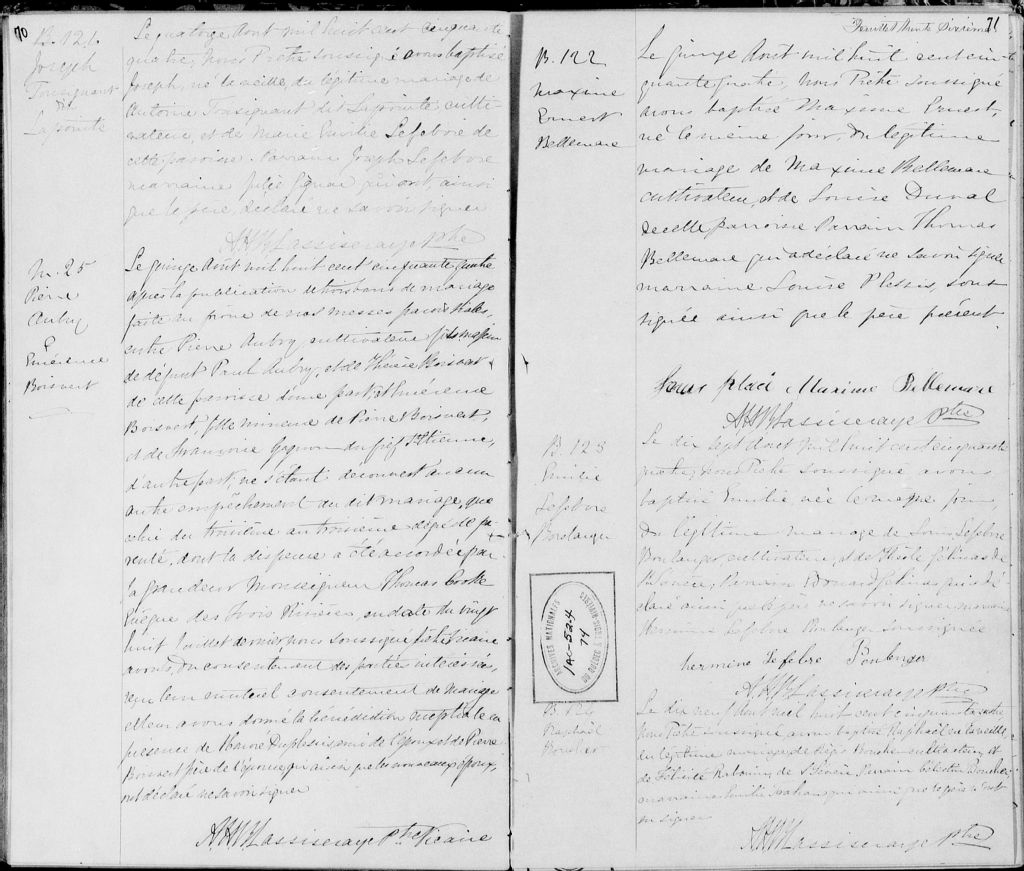 70
B. 121
Joseph
Tousignant
dit
Lapointe
Le quatorze Aout mil huit cent cinquante
quatre, Nous Prêtre soussigné avons baptisé
Joseph, né la veille, du légitime mariage de
Antoine Tousignant dit Lapointe culti-
vateur, et de Marie Emilie Lefebvre de
cette paroisse. Parrain Joseph Lefebvre
marraine Julie qui ont, ainsi
que le père, déclaré ne savoir signer
Ptre
M. 25
Pierre
Aubry
&
Emérence
Boisvert
Le quinze Aout mil huit cent cinquante quatre
après la publication de trois bans de mariage
faite au prône de nos messes paroissiales,
entre Pierre Aubry, cultivateur fils majeur
de défunt Paul Aubry, et de Thérèse Boisvert
de cette paroisse d'une part, et Emérence
Boisvert, fille mineure de Pierre Boisvert,
et de Françoise Gagnon du fief St Etienne,
d'autre part, ne s'étant découvert aucun
autre empêchement au dit mariage, que
celui du troisième au troisième degré de pa-
renté, dont la dispense a été accordée par
Sa Grandeur Monseigneur Thomas Cooke
Evêque des Trois Rivières, en date du vingt
huit Juillet dernier, nous soussigné Prêtre Vicaire
avons, du consentement des parties intéressées,
reçu leur mutuel consentement de mariage
et leur avons donné la bénédiction nuptiale en
présence de Duplessis ami de l'époux et de Pierre
Boisvert père de l'épouse qui ainsi que les nouveaux époux,
ont déclaré ne savoir signer
Ptre Vicaire
71
Feuillet trente sixième
B. 122
Maxime
Ernest
Bellemare
Le quinze Aout mil huit cent cin-
quante quatre, Nous Prêtre soussigné
avons baptisé Maxime Ernest,
né le même jour, du légitime
mariage de Maxime Bellemare
cultivateur, et de Louise Duval
de cette paroisse Parrain Thomas
Bellemare qui a déclaré ne savoir signer
marraine Louise Plessis, sous-
signée ainsi que le père présent
Maxime Bellemare
Ptre
B. 123
Emilie
Lefebvre
Boulanger
Le dix sept Aout mil huit cent cinquante
quatre, nous Prêtre soussigné avons
baptisé Emilie, née le même jour,
du légitime mariage de Louis Lefebvre
Boulanger, cultivateur, et de Gélinas de
Parrain Edouard Gélinas qui a dé-
claré ainsi que le père ne savoir signer, marraine
Hermine Lefebvre Boulanger soussignée
hermine Lefebre Boulenger
Ptre
ARCHIVES NATIONALES
DU QUÉBEC
1AC-524
74
B. 124
Raphaël
Boucher
Le dix neuf Aout mil huit cent cinquante quatre
nous Prêtre soussigné avons baptisé Raphaël né la veille
du légitime mariage de Boucher cultivateur, et
de de St Sévère, Parrain Célestin Boucher
marraine Emilie qui ainsi que le père n'ont
su signer
Ptre